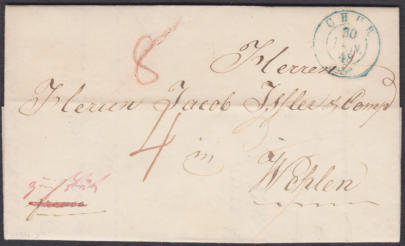 CHUR
30
49
8
Herren
Herren Jacob Isler & Comp
4
in
Wohlen
franco